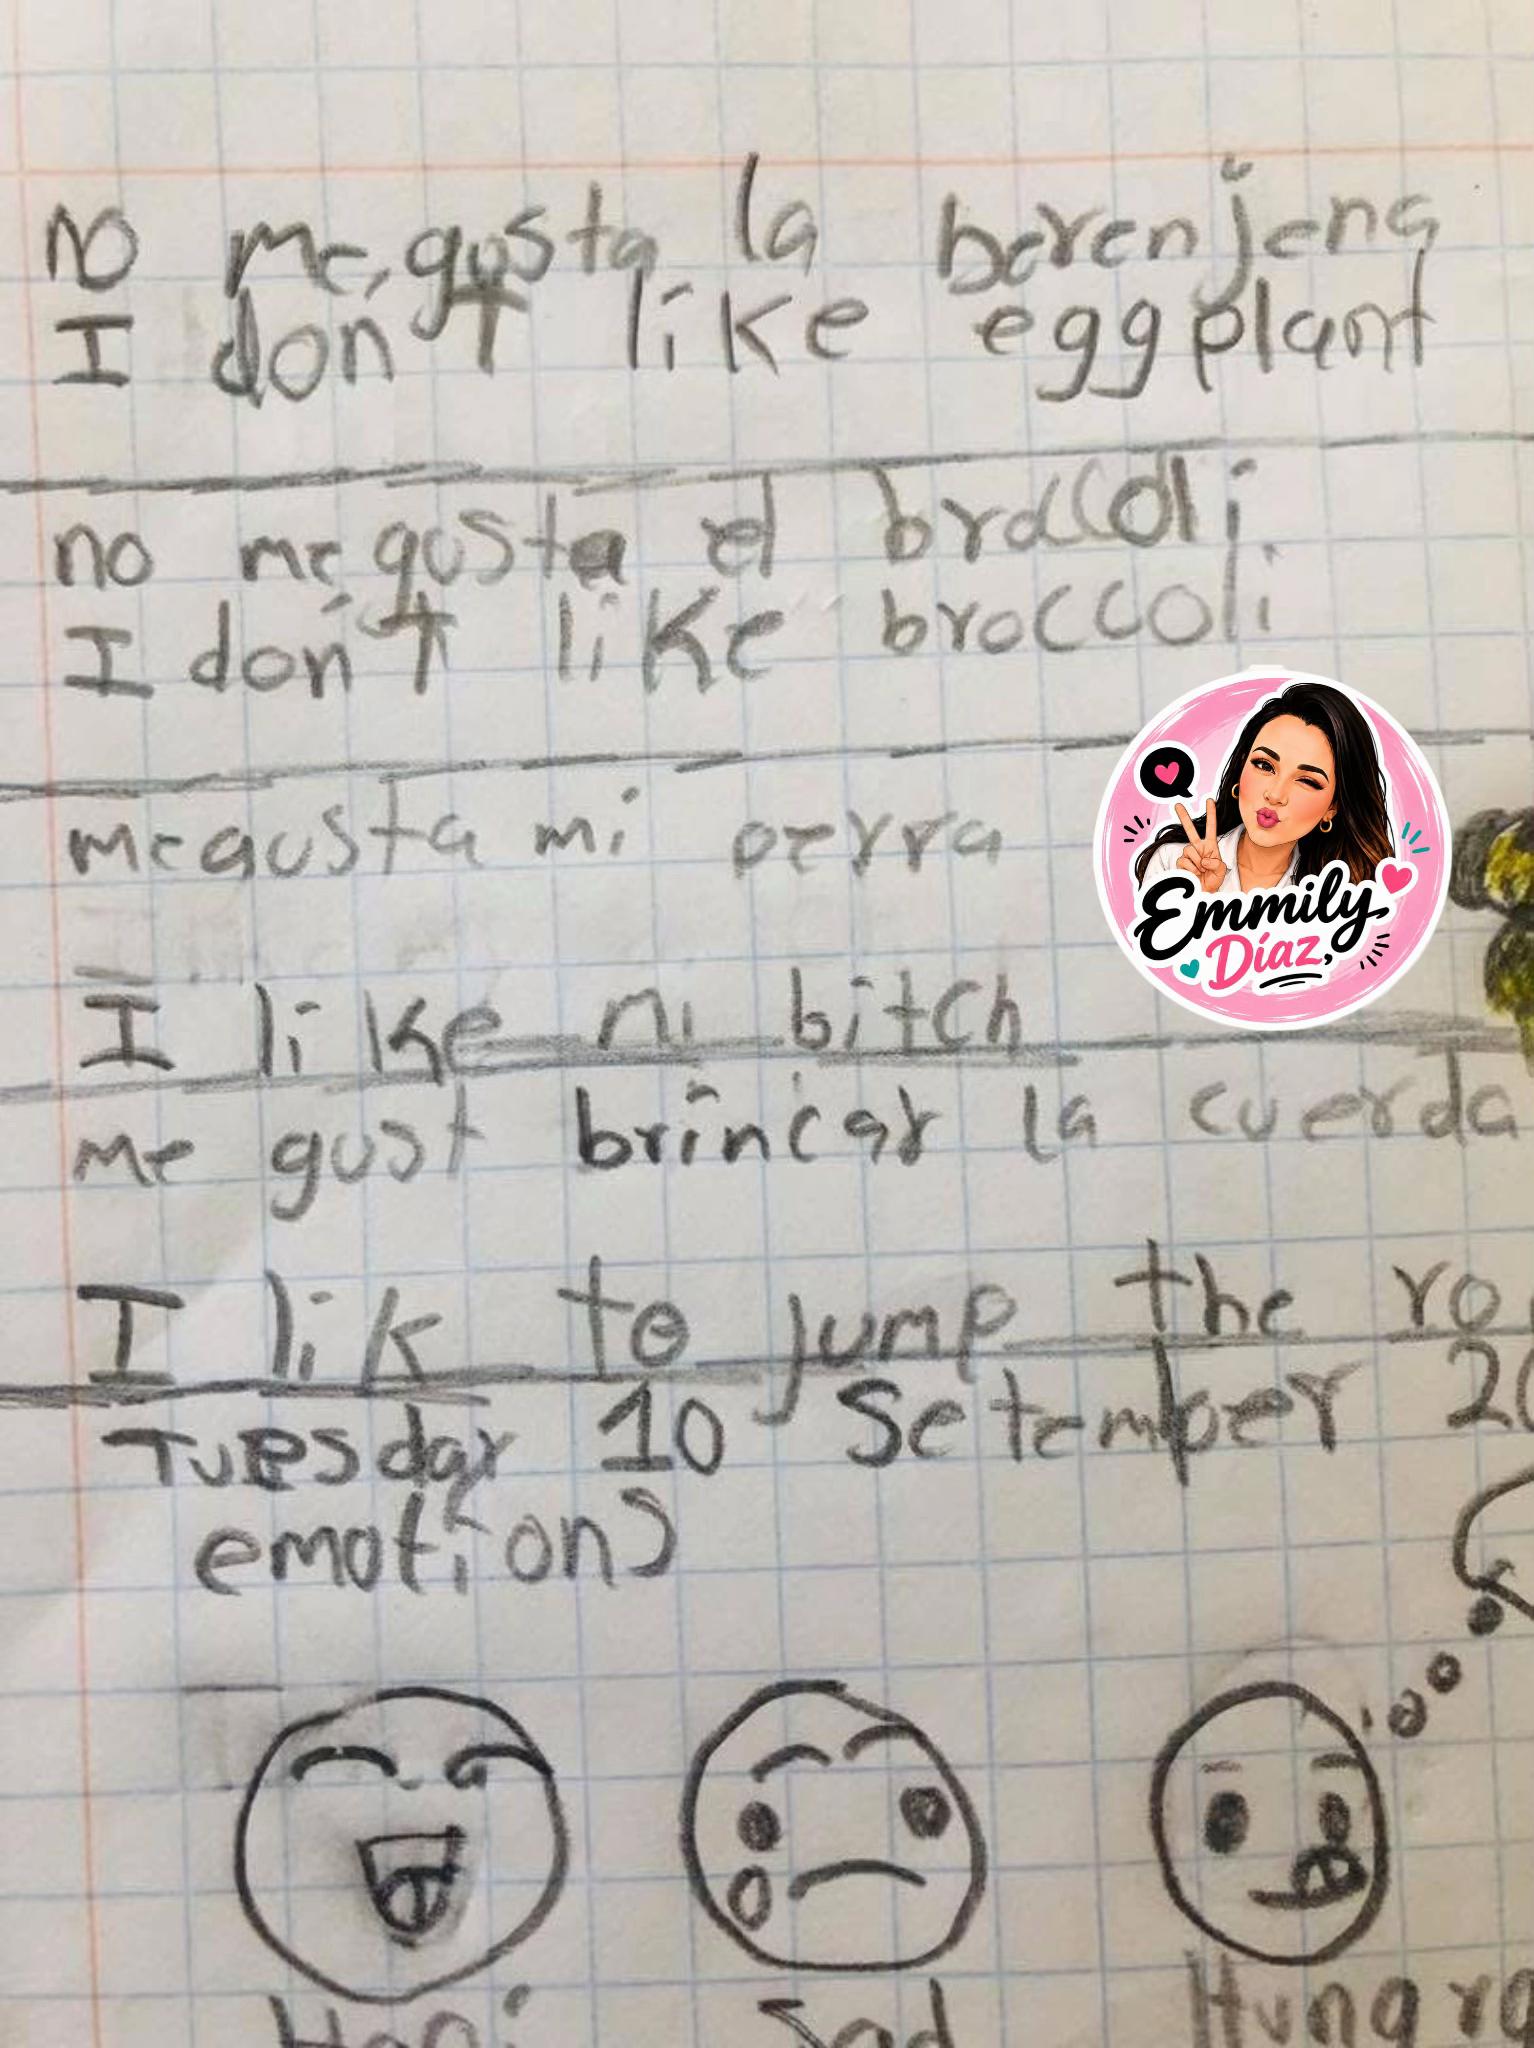 no me gusta la berenjena
I don't like eggplant
no me gusta el braccoli
I don't like broccoli
me gusta mi perra
Emmily
Díaz,
I like mi bitch
me gust brincar la cuerda
I lik to jump the ro
Tuesday 10 Setember 20
emotions
Hapi Sad Hungry